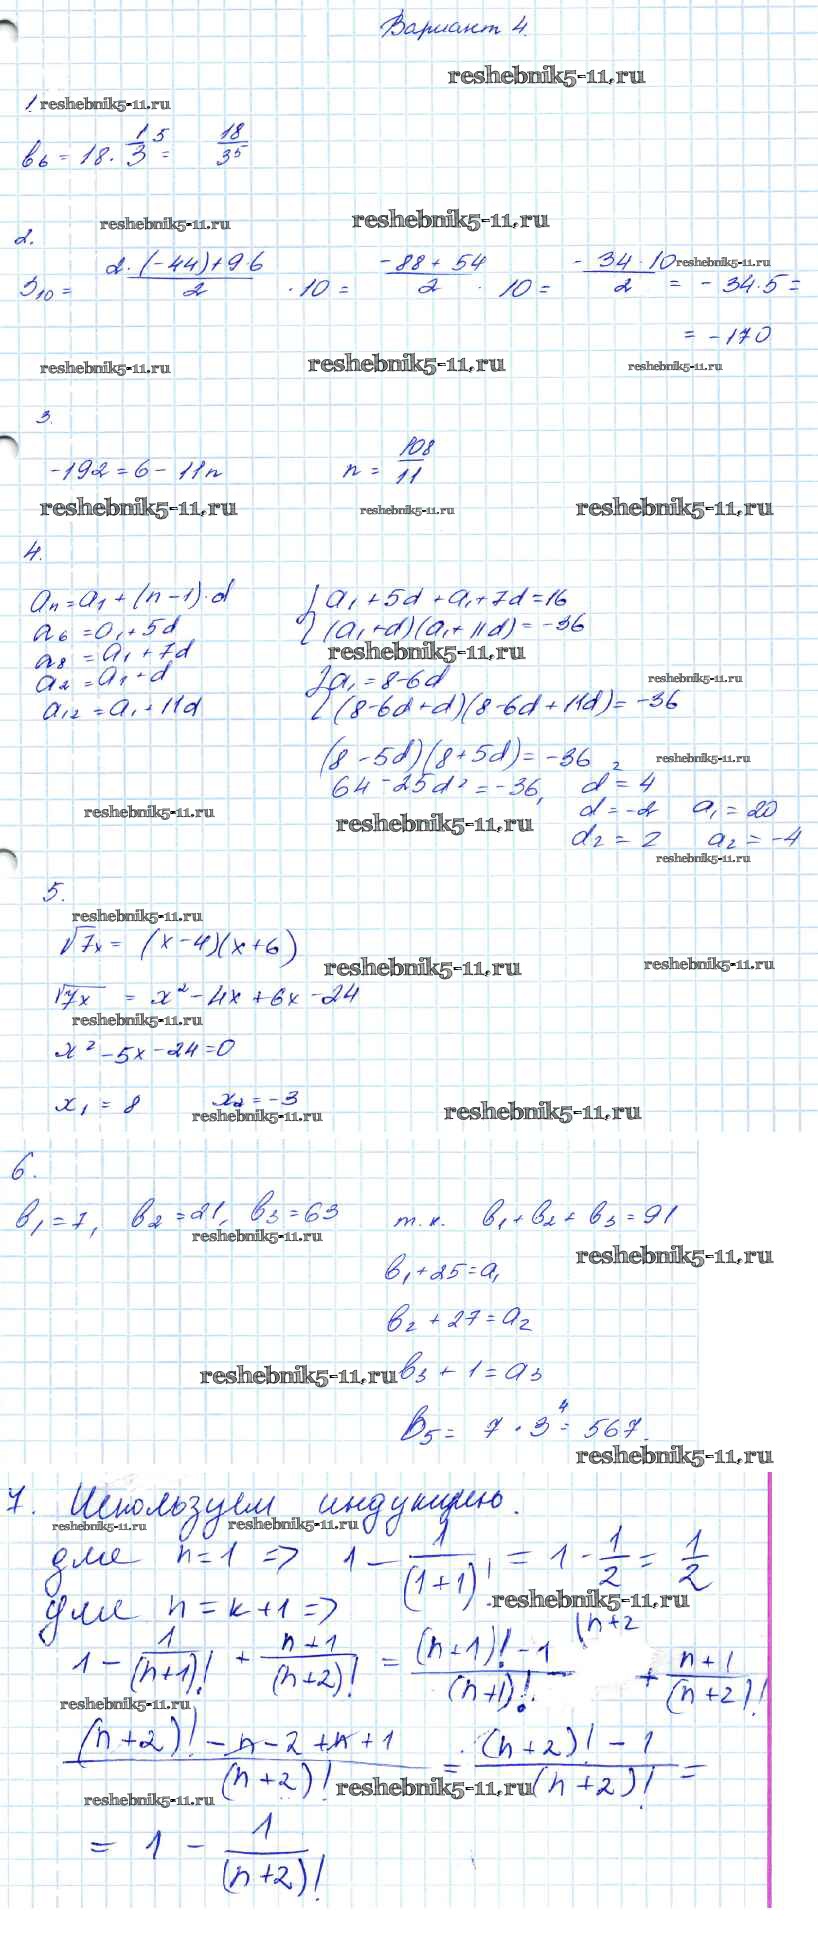 Вариант 4.
reshebnik5-11.ru
1. reshebnik5-11.ru
b₆ = 18 · 1/3⁵ = 18/3⁵
reshebnik5-11.ru reshebnik5-11.ru
2.
S₁₀ = (2·(-44)+9·6)/2 · 10 = (-88+54)/2 · 10 = -34·10/2 = -34·5 =
reshebnik5-11.ru
= -170
reshebnik5-11.ru reshebnik5-11.ru reshebnik5-11.ru
3.
-192 = 6 - 11n n = 108/11
reshebnik5-11.ru reshebnik5-11.ru reshebnik5-11.ru
4.
aₙ = a₁ + (n-1)·d { a₁ + 5d + a₁ + 7d = 16
a₆ = a₁ + 5d (a₁+d)(a₁+11d) = -36
a₈ = a₁ + 7d reshebnik5-11.ru
a₂ = a₁ + d { a₁ = 8-6d reshebnik5-11.ru
a₁₂ = a₁ + 11d (8-6d+d)(8-6d+11d) = -36
(8-5d)(8+5d) = -36 reshebnik5-11.ru
64 - 25d² = -36, d² = 4
reshebnik5-11.ru reshebnik5-11.ru d = -2 a₁ = 20
d₂ = 2 a₂ = -4
reshebnik5-11.ru
5.
reshebnik5-11.ru
√7x = (x-4)(x+6)
reshebnik5-11.ru reshebnik5-11.ru
√7x = x² - 4x + 6x - 24
reshebnik5-11.ru
x² - 5x - 24 = 0
x₁ = 8 x₂ = -3
reshebnik5-11.ru reshebnik5-11.ru
6.
b₁ = 7, b₂ = 21, b₃ = 63 т.к. b₁ + b₂ + b₃ = 91
reshebnik5-11.ru reshebnik5-11.ru
b₁ + 25 = a₁
b₂ + 27 = a₂
reshebnik5-11.ru b₃ + 1 = a₃
B₅ = 7 · 3⁴ = 567.
reshebnik5-11.ru
7. Используем индукцию.
reshebnik5-11.ru reshebnik5-11.ru
для n=1 => 1 - 1/(1+1)! = 1 - 1/2 = 1/2
для n = k+1 => reshebnik5-11.ru
1 - 1/(n+1)! + (n+1)/(n+2)! = ((n+1)! - 1)/(n+1)! (n+2 + (n+1)/(n+2)!
reshebnik5-11.ru
((n+2)! - n - 2 + n + 1)/(n+2)! = ((n+2)! - 1)/(n+2)! =
reshebnik5-11.ru reshebnik5-11.ru
= 1 - 1/(n+2)!